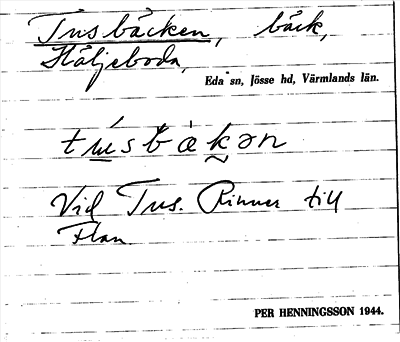 Tnsbäcken, bäck,
Häljeboda,
Eda sn, Jösse hd, Värmlands län.
Vid Tns. Rinner till
Flan
PER HENNINGSSON 1944.